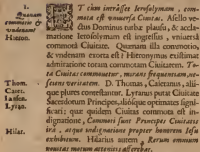 I.
Quanam commotio & undenam?
Hieron.
ET cùm intrâsset Ierosolymam, com-
mota est universa Civitas. Asello ve-
ctus Dominus turbæ plausu, & accla-
matione Ierosolymam est ingressus, universâ
commotâ Civitate. Quænam illa commotio,
& undenam exorta est? Hieronymus existimat
admiratione totam commotam Civitatem. To-
ta Civitas commovetur, mirans frequentiam, ne-
sciens veritatem. D. Thomas, Caietanus, alii-
que plures consentiunt. Lyranus putat Civitatis
Sacerdotum Principes, aliósque optimates signi-
ficari; quæ quidem Civitas commota est in-
dignatione, Commoti sunt Principes Civitatis
irâ, atque indignatione propter honorem Iesu
exhibitum. Hilarius autem
Thom.
Caiet.
Lyran.
Hilar.